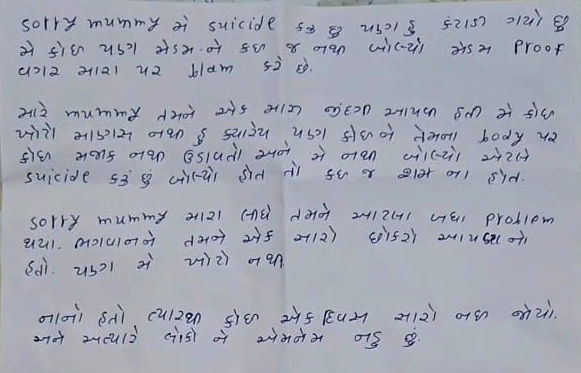 sorry mummy મે suicide કરૂ છુ પણ હુ કંટાળી ગયો છુ
મે કોઇ પણ મેડમ ને કઇ જ નથી બોલ્યો મેડમ Proof
વગર મારા પર blam કરે છે.
મારે mummy તમને એક સારી જીંદગી આપવી હતી મે કોઇ
ખોટો માણસ નથી હુ ક્યારેય પણ કોઇ ને તેમના body પર
કોઇ મજાક નથી ઉડાવતો અને મે નથી બોલ્યો એટલે
suicide કરૂ છું બોલ્યો હોત તો કઇ જ શમ ના હોત.
sorry mummy મારા લીધે તમને આટલા બધા Problem
થયા. ભગવાન ને તમને એક સારો છોકરો આપવા નો
હતો. પણ મે ખોટો નથી
નાનો હતો ત્યારથી કોઇ એક દિવસ સારો નઇ જોયો.
અને અત્યારે લોકો ને એમનેમ નડુ છું.